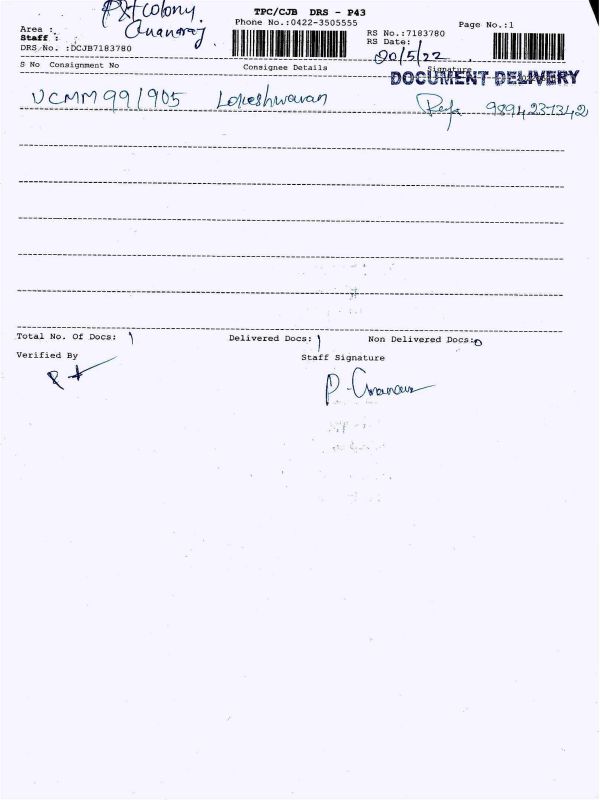 P&T colony.
TPC/CJB DRS - P43
Phone No.:0422-3505555
Page No.:1
Area :
Staff :
RS No.:7183780
RS Date:
20/5/22
DRS No. :DCJB7183780
S No Consignment No Consignee Details Signature
DOCUMENT DELIVERY
Lokeshwaran 9894237342
Total No. Of Docs: 1 Delivered Docs: 1 Non Delivered Docs:0
Verified By Staff Signature